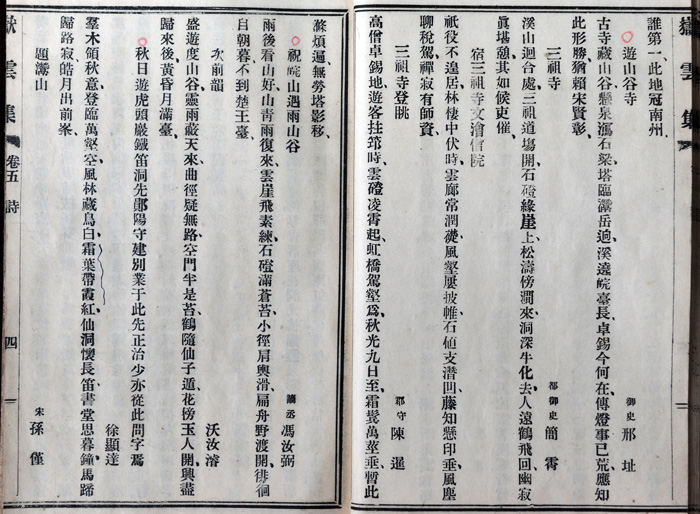 嶽雲集
誰第一此地冠南州
遊山谷寺
御史 邢址
古寺藏山谷懸泉瀉石梁塔臨灊岳逈溪遶皖臺長卓錫今何在傳燈事已荒應知
此形勝猶賴宋賢彰
三祖寺
都御史 簡霄
溪山迴合處三祖道場開石磴緣崖上松濤傍澗來洞深牛化去人遠鶴飛回幽寂
眞堪憩其如候吏催
宿三祖寺文澮僧院
郡守 陳暹
祇役不遑居林棲中伏時雲廊常潤礎風壑屢披帷石碵支潛凹藤知懸印垂風塵
聊稅駕禪寂有師資
三祖寺登眺
高僧卓錫地遊客拄筇時雲磴凌霄起虹橋駕壑爲秋光九日至霜鬂萬莖垂暫此
滌煩遍無勞塔影移
祝皖山遇雨山谷
馮汝弼
雨後看山好山靑雨復來雲崖飛素練石磴滿蒼苔小徑肩輿滑扁舟野渡開徘徊
日朝暮不到楚王臺
次前韻
沃汝濬
盛遊度山谷靈雨蔽天來曲徑疑無路空門半是苔鶴隨仙子遁花傍玉人開興盡
歸來後黃昏月滿臺
秋日遊虎頭巖鐵笛洞先鄖陽守建別業于此先正治少亦從此問字焉
徐顯達
羣木領秋意登臨萬壑空風林藏鳥白霜葉帶霞紅仙洞懷長笛書堂思暮鐘馬蹄
歸路寂皓月出前峯
題灊山
宋 孫僅
嶽雲集 卷五 詩 四